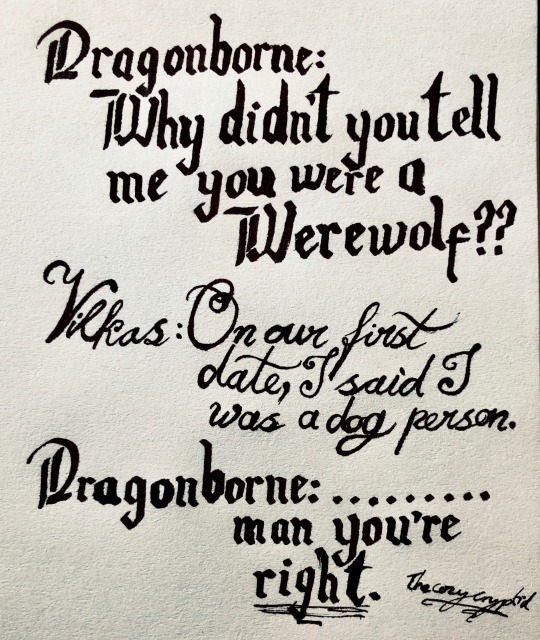 Dragonborne:
Why didn't you tell
me you were a
Werewolf??
Vilkas: On our first
date, I said I
was a dog person.
Dragonborne: .........
man you're
right.
Thecozycryptid